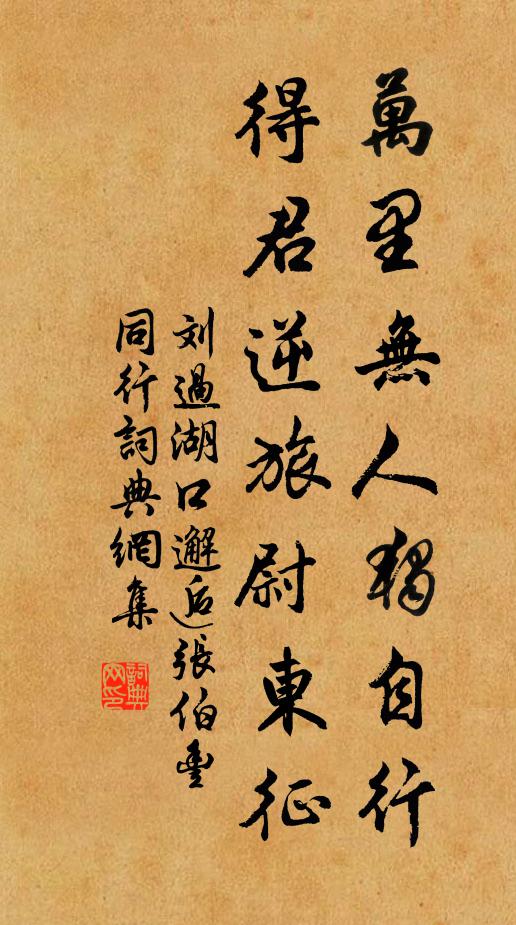 萬里無人獨自行
得君逆旅尉東征
刘過湖口邂逅張伯豐
同行詞典網集
詞典
网印